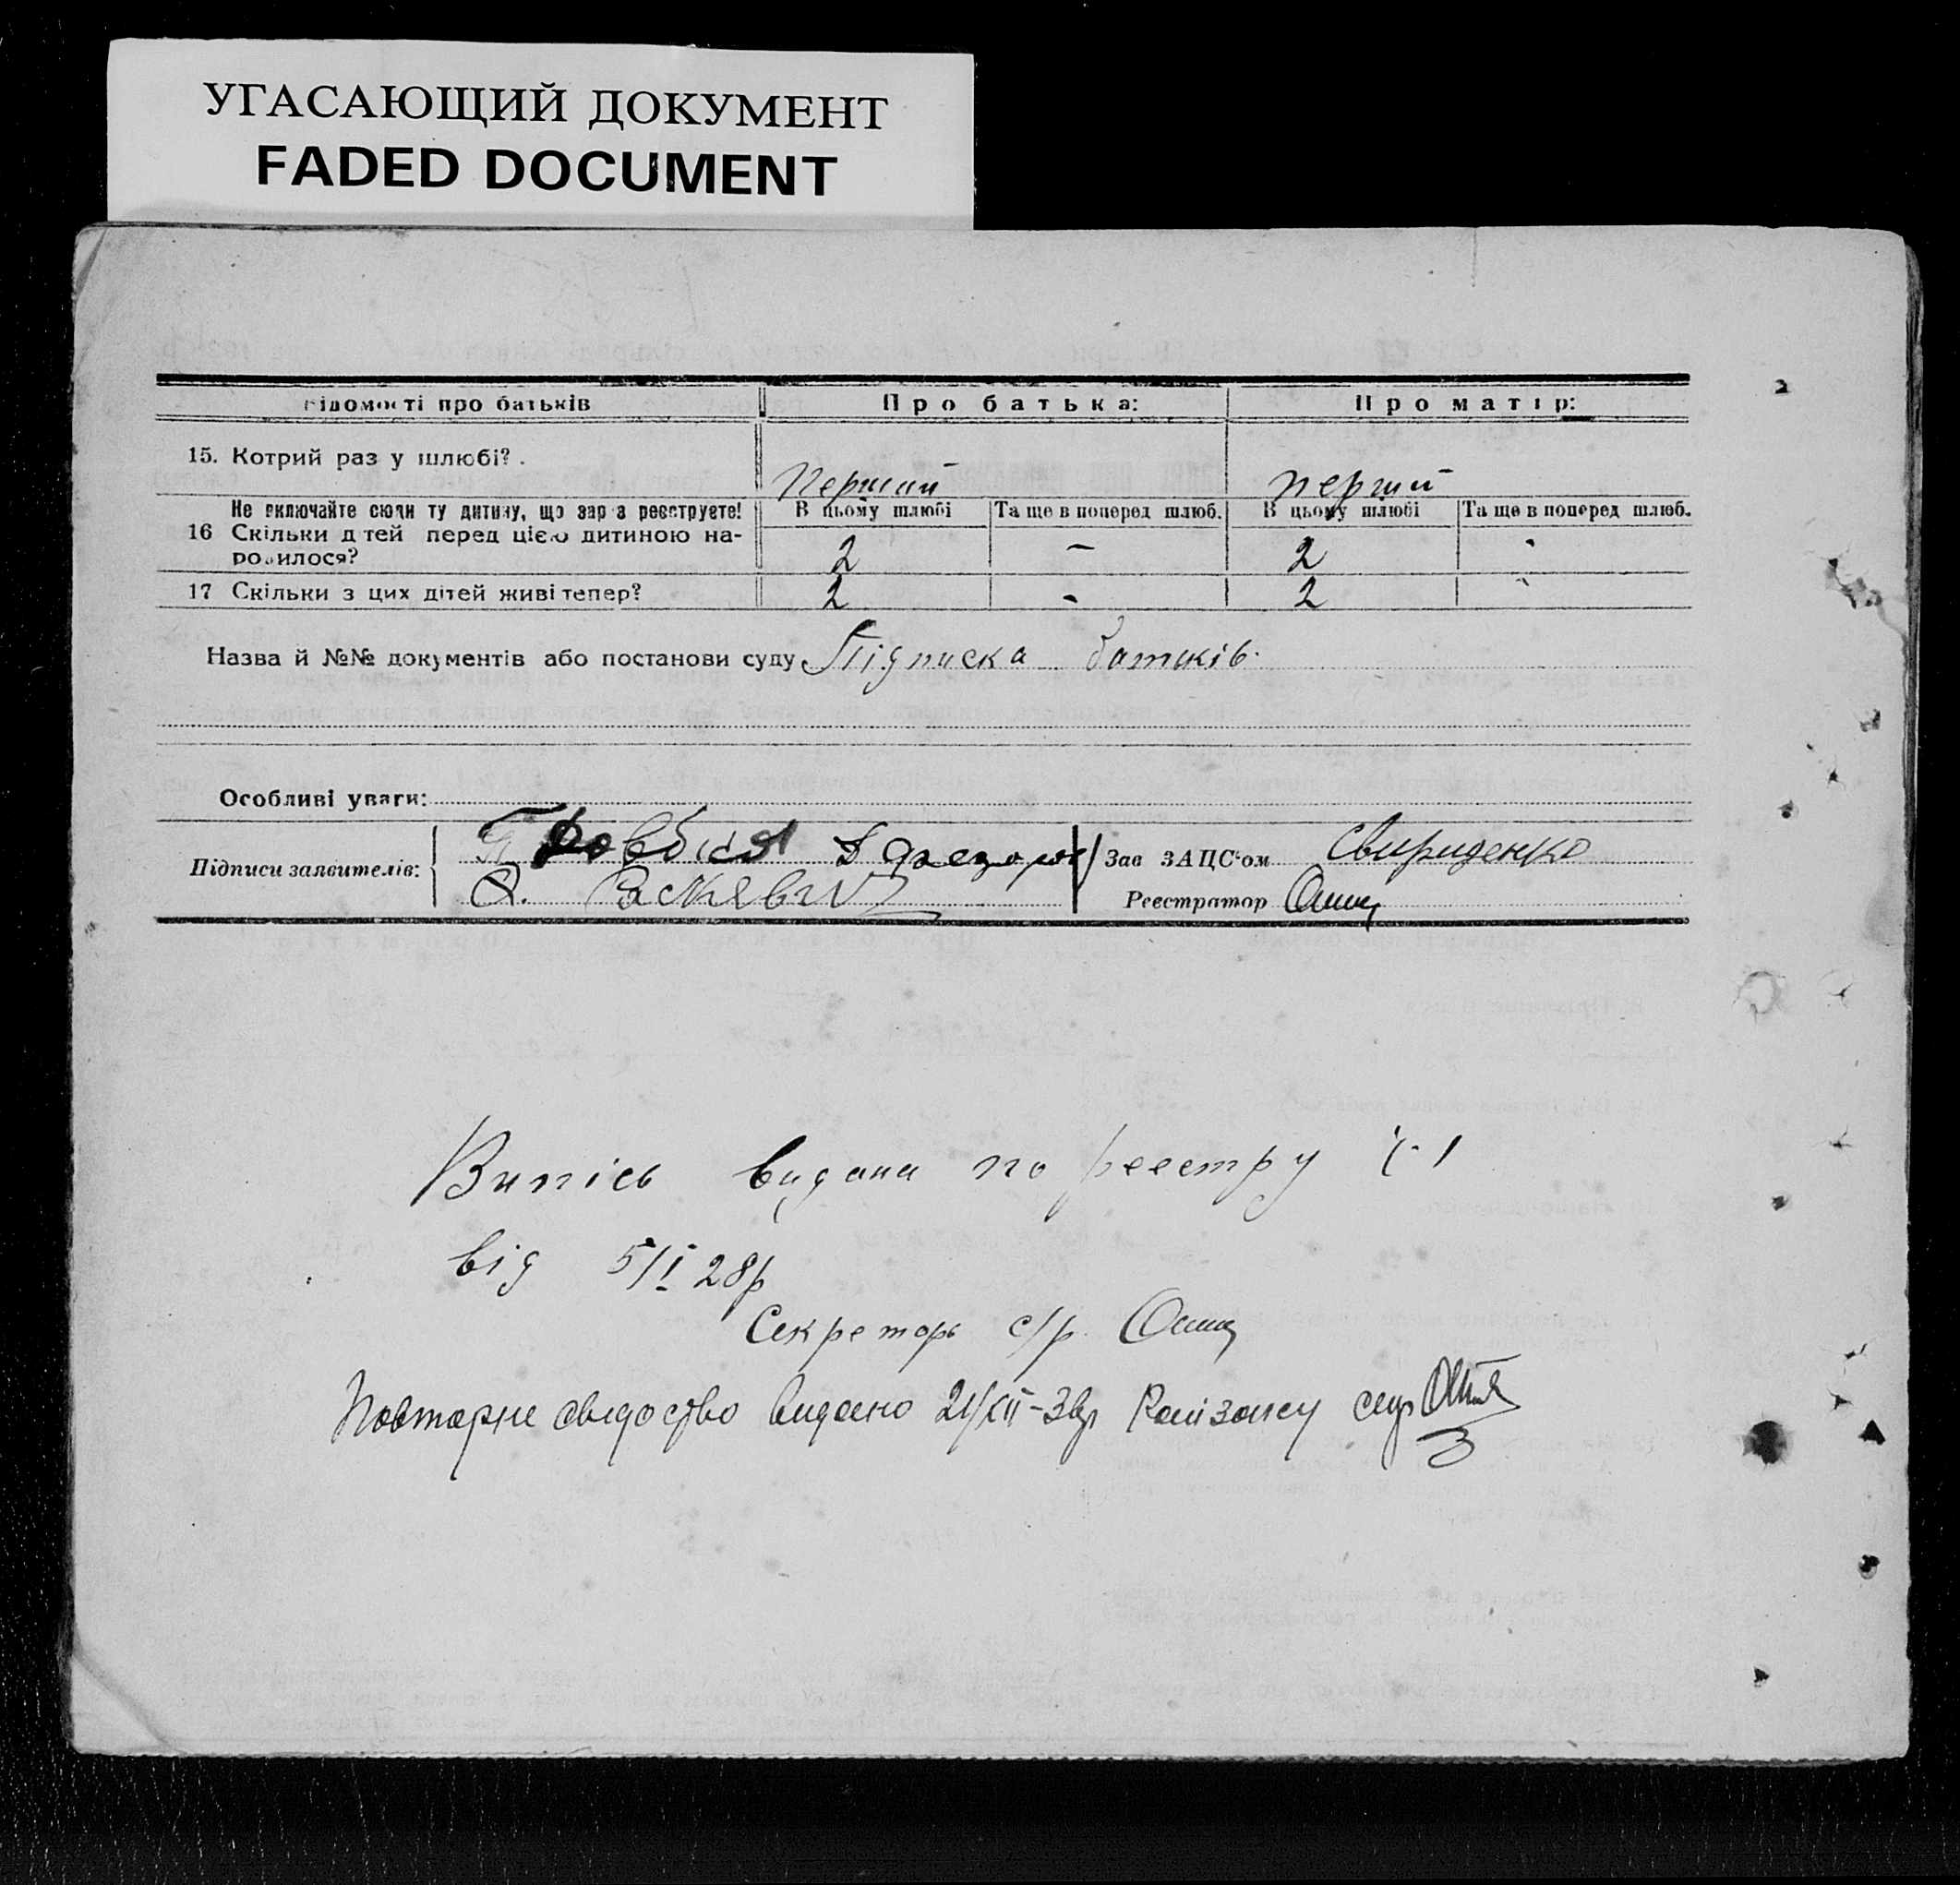 УГАСАЮЩИЙ ДОКУМЕНТ
FADED DOCUMENT
Відомості про батьків
Про батька:
Про матір:
15. Котрий раз у шлюбі?
Перший
перший
Не включайте сюди ту дитину, що зараз реєструєте!
В цьому шлюбі
Та ще в поперед шлюб.
В цьому шлюбі
Та ще в поперед шлюб.
16 Скільки дітей перед цією дитиною на-
родилося?
2
-
2
-
17 Скільки з цих дітей живі тепер?
2
-
2
-
Назва й №№ документів або постанови суду Підписка батьків.
Особливі уваги:
Підписи заявителів:
Зав ЗАЦС'ом Свириденко
Реєстратор
Випісь видана по реестру ч. 1
від 5/I 28р
Секретарь с/р.
Повторне свидоство видано 21/XII-38р